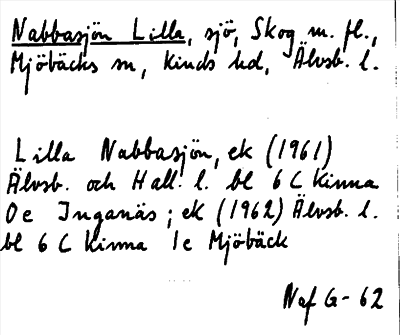 Nabbasjön Lilla, sjö, Skog m. fl.,
Mjöbäcks sn, Kinds hd, Älvsb. l.
Lilla Nabbasjön, ek (1961)
Älvsb. och Hall. l. bl 6 C Kinna
0e Inganäs; ek (1962) Älvsb. l.
bl 6 C Kinna 1e Mjöbäck
Naf G-62